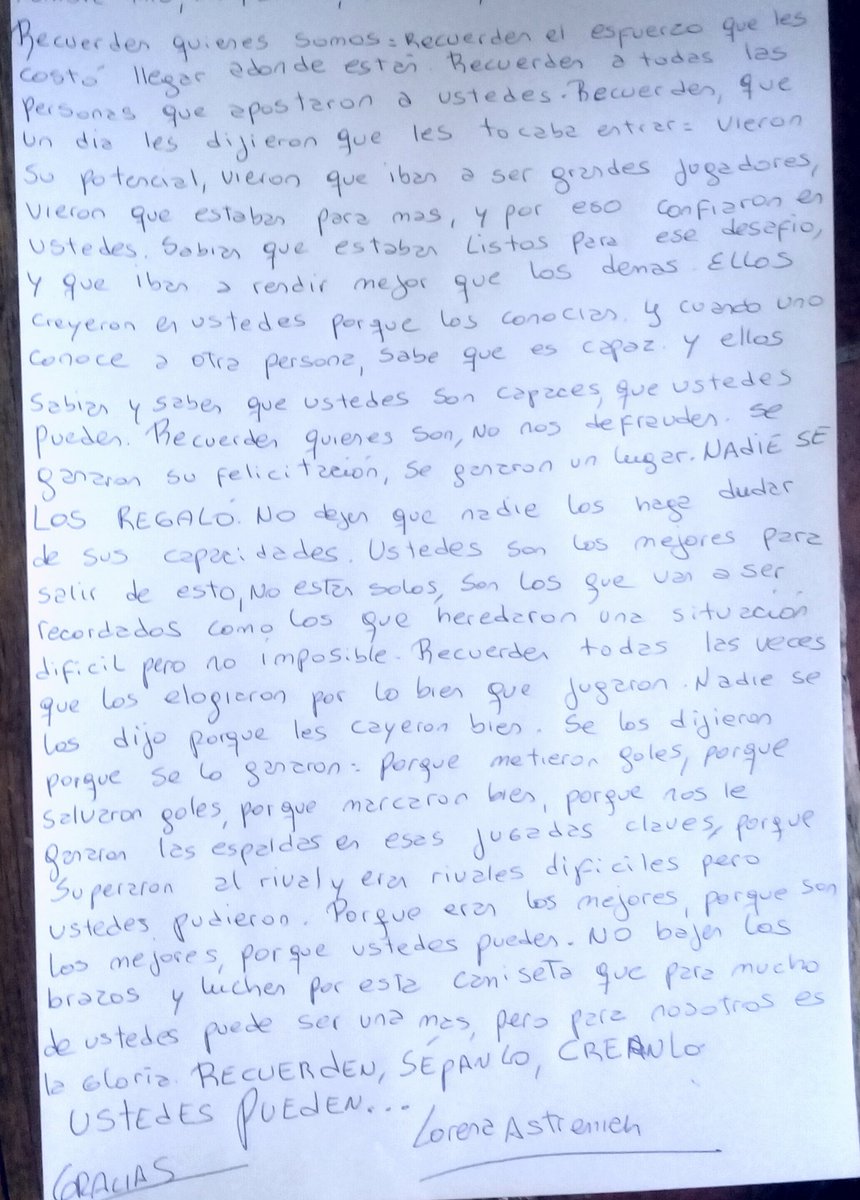 Recuerden quienes somos: Recuerden el esfuerzo que les
costó llegar adonde están. Recuerden a todas las
personas que apostaron a ustedes. Recuerden, que
un dia les dijieron que les tocaba entrar: vieron
su potencial, vieron que iban a ser grandes jugadores,
vieron que estaban para mas, y por eso confiaron en
ustedes. Sabian que estaban listos para ese desafio,
y que iban a rendir mejor que los demas. ELLOS
creyeron en ustedes porque los conocian. y cuando uno
conoce a otra persona, sabe que es capaz. y ellos
sabian y saben que ustedes son capaces, que ustedes
pueden. Recuerden quienes son, NO nos defrauden. Se
ganaron su felicitación, se ganaron un lugar. NADIE SE
LOS REGALÓ. NO dejen que nadie los haga dudar
de sus capacidades. Ustedes son los mejores para
salir de esto, NO están solos, son los que van a ser
recordados como los que heredaron una situación
dificil pero no imposible. Recuerden todas las veces
que los elogiaron por lo bien que jugaron. Nadie se
los dijo porque les cayeron bien. Se los dijieron
porque se lo ganaron: porque metieron goles, porque
salvaron goles, porque marcaron bien, porque nos le
ganaron las espaldas en esas jugadas claves, porque
superaron al rival y eran rivales dificiles pero
ustedes pudieron. Porque eran los mejores, porque son
los mejores, porque ustedes pueden. NO bajen los
brazos y luchen por esta camiseta que para mucho
de ustedes puede ser una mas, pero para nosotros es
la Gloria. RECUERDEN, SÉPANLO, CREANLO
USTEDES PUEDEN...
Lorena Astremien
GRACIAS